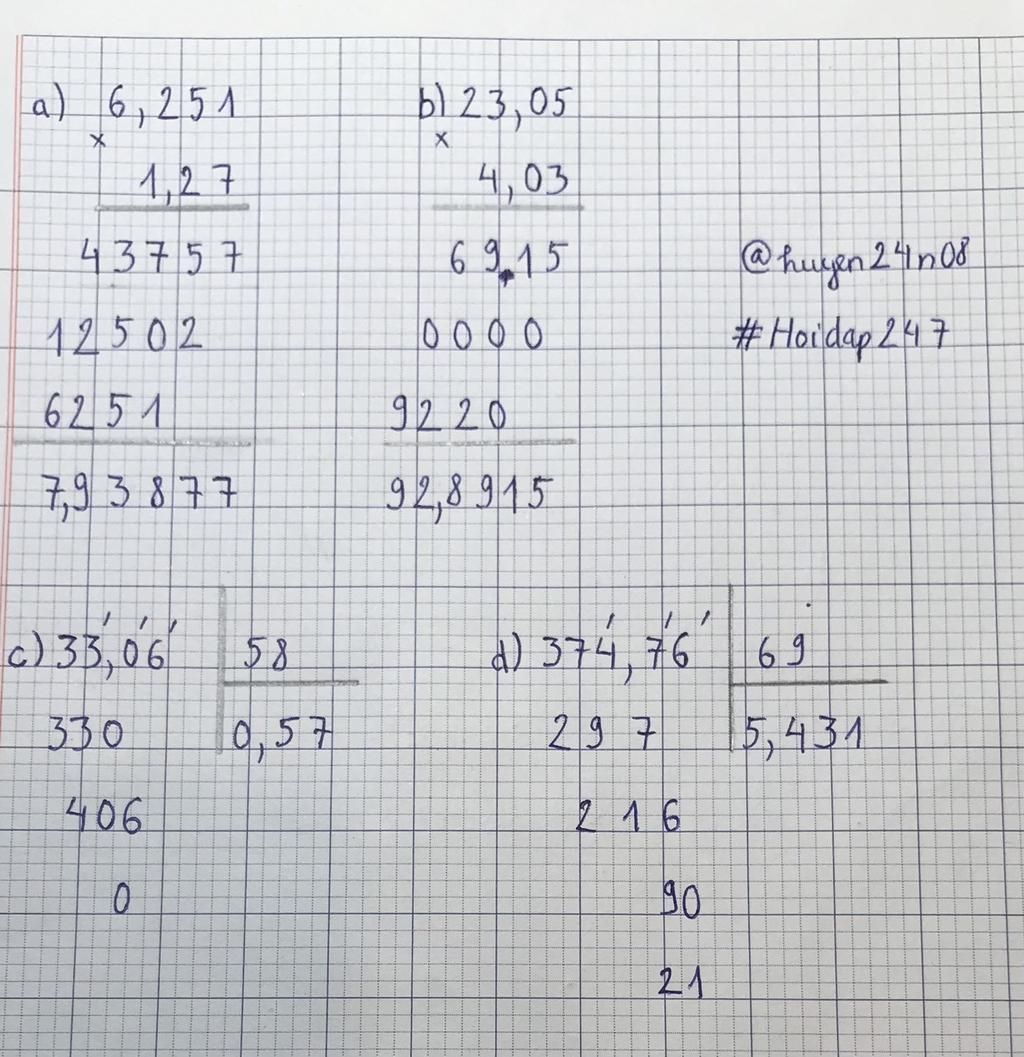 a) 6,251
×
1,27
43757
12502
6251
7,93877
b) 23,05
×
4,03
6915
0000
9220
92,8915
@huyen24n08
#Hoidap247
c) 33,06 58
330 0,57
406
0
d) 374,76 69
297 5,431
216
90
21